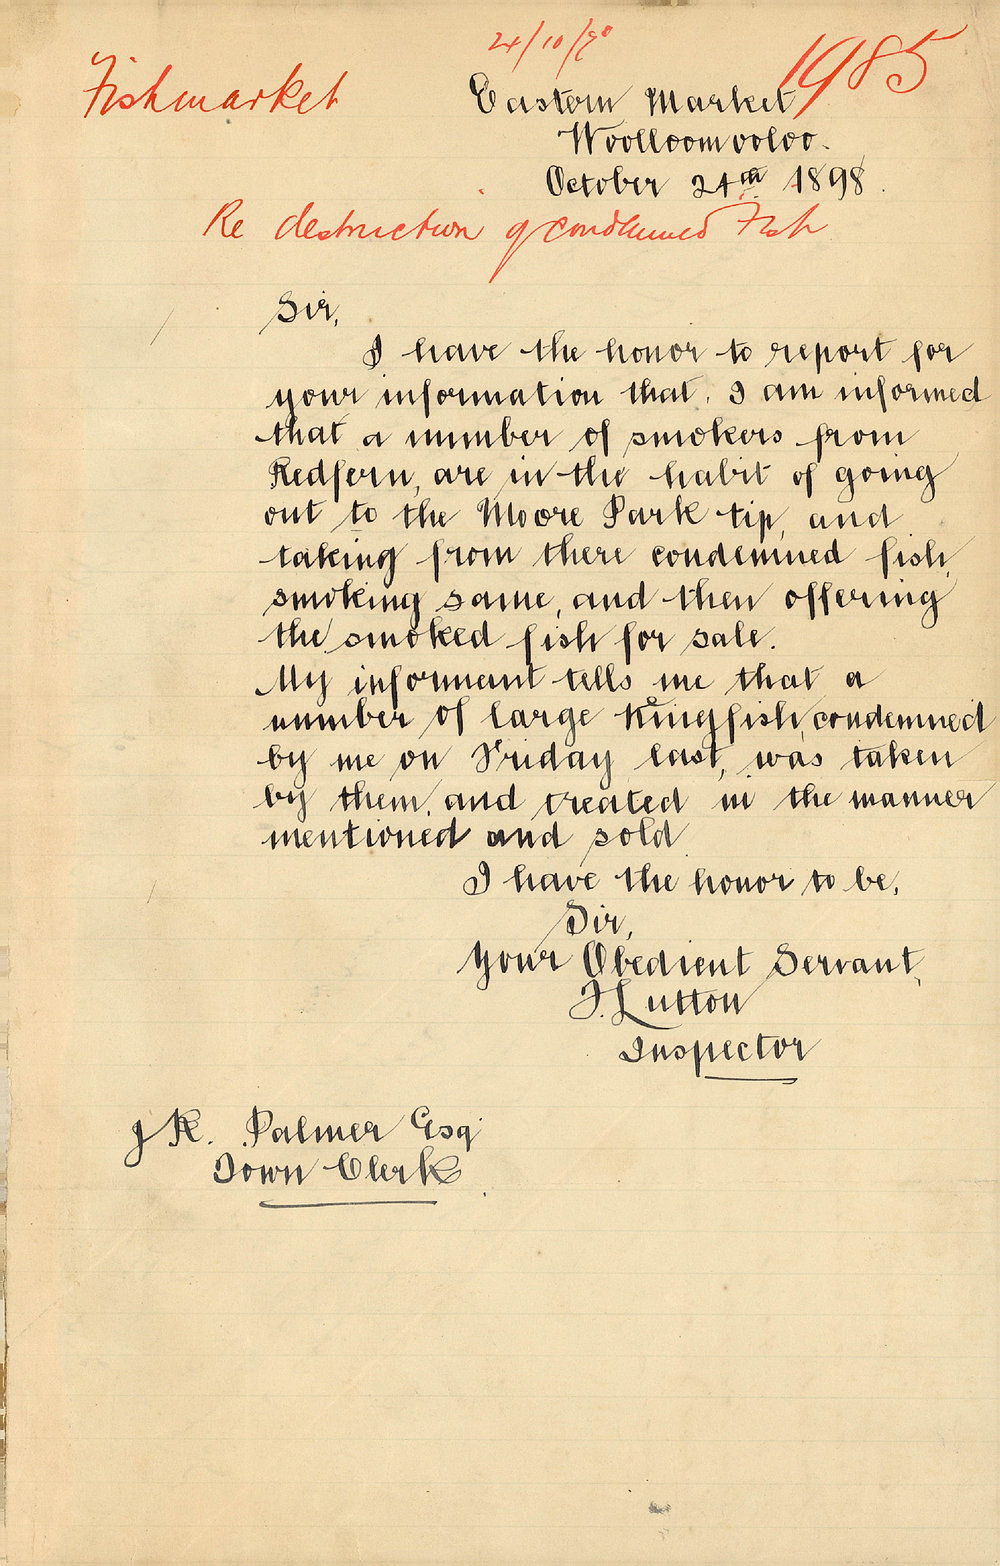 24/10/98
1985
Fishmarket
Eastern Market
Woolloomooloo.
October 24th 1898.
Re destruction of condemned Fish
Sir,
I have the honor to report for
your information that, I am informed
that a number of smokers from
Redfern, are in the habit of going
out to the Moore Park tip, and
taking from there condemned fish,
smoking same, and then offering
the smoked fish for sale.
My informant tells me that a
number of large Kingfish, condemned
by me on Friday last, was taken
by them, and treated in the manner
mentioned and sold
I have the honor to be,
Sir,
Your Obedient Servant,
J. Lutton
Inspector
J R. Palmer Esq
Town Clerk.